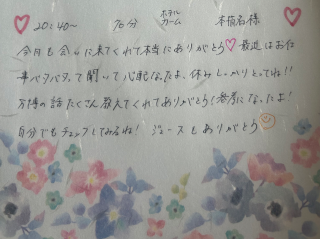 ♡ 20:40〜 70分 ホテル カーム 本指名様 ♡
今日も会いに来てくれて本当にありがとう♡最近はお仕
事バタバタって聞いて心配なったよ、休みしっかりとってね!!
万博の話たくさん教えてくれてありがとう!参考になったよ!
自分でもチェックしてみるね! ジュースもありがとう☺